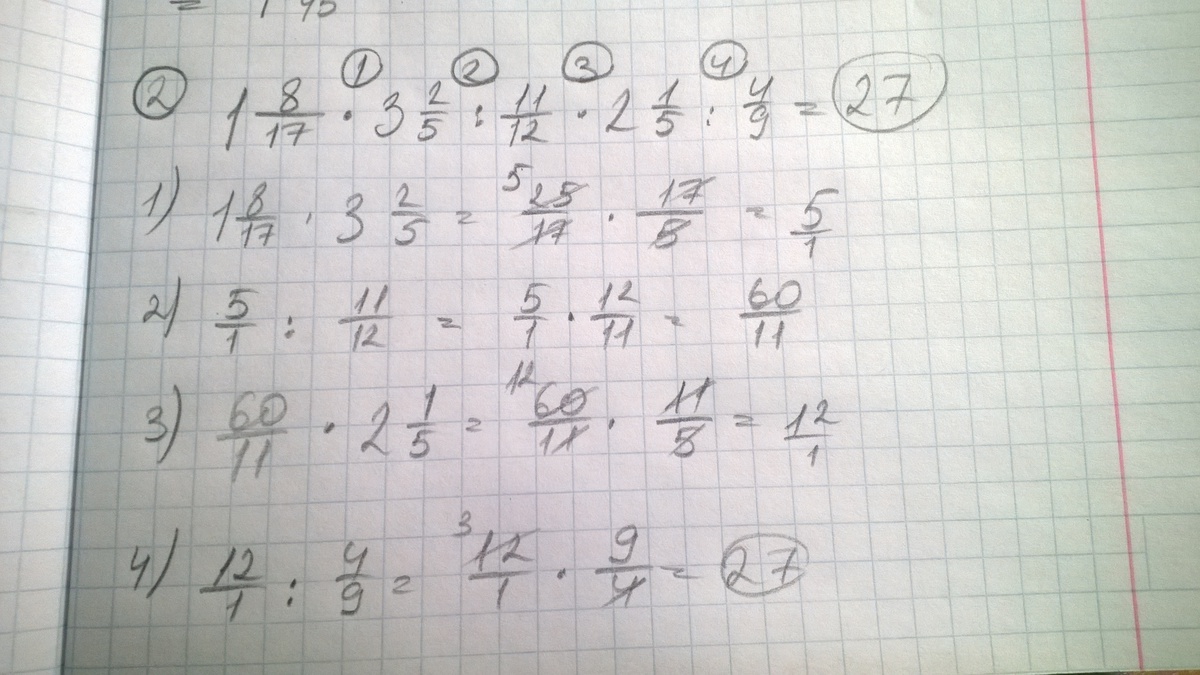 = 1 45
② 1 8/17 ① · 3 2/5 ② : 11/12 ③ · 2 1/5 ④ : 4/9 = 27
1) 1 8/17 · 3 2/5 = 5 25/17 · 17/5 = 5/1
2) 5/1 : 11/12 = 5/1 · 12/11 = 60/11
3) 60/11 · 2 1/5 = 12 60/11 · 11/5 = 12/1
4) 12/1 : 4/9 = 3 12/1 · 9/4 = 27